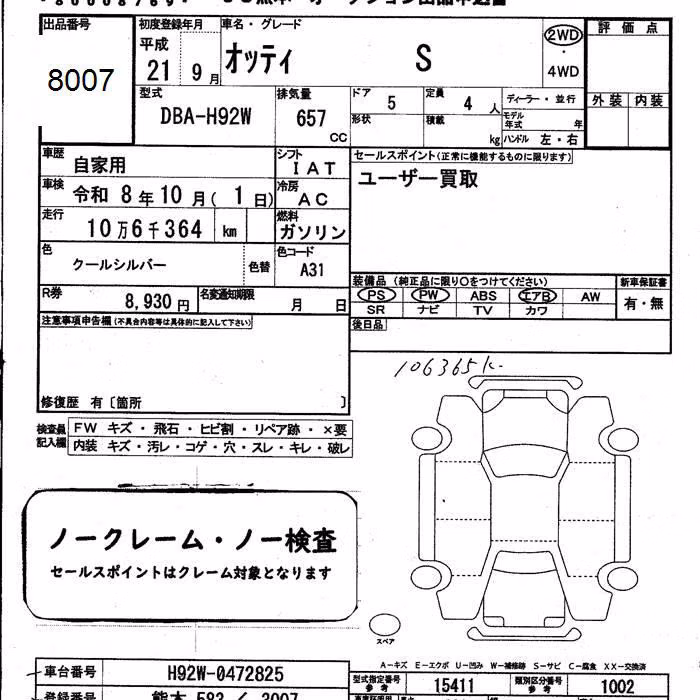 出品番号
8007
初度登録年月
平成
21 9月
車名・グレード
オッティ S
2WD
・
4WD
評価点
外装 内装
型式
DBA-H92W
排気量
657
CC
ドア 5
定員 4 人
形状
積載 kg
ディーラー・並行
モデル年式 年
ハンドル 左・右
車歴 自家用
シフト IAT
セールスポイント(正常に機能するものに限ります)
ユーザー買取
車検 令和 8年10月(1日)
冷房 AC
走行 10万6千364 km
燃料 ガソリン
色 クールシルバー 色替
色コード A31
R券 8,930円
名変通知期限 月 日
装備品(純正品に限り○をつけてください)
新車保証書
PS PW ABS エアB AW
有・無
SR ナビ TV カワ
後日品
注意事項申告欄(不具合内容等は具体的に記入して下さい)
106365k
修復歴 有〔箇所 〕
検査員記入欄
FW キズ・飛石・ヒビ割・リペア跡・×要
内装 キズ・汚レ・コゲ・穴・スレ・キレ・破レ
ノークレーム・ノー検査
セールスポイントはクレーム対象となります
スペア
A−キズ E−エクボ U−凹み W−補修跡 S−サビ C−腐食 XX−交換済
車台番号 H92W-0472825
型式指定番号参考 15411
類別区分番号参考 1002
登録番号 熊本 583 / 3007